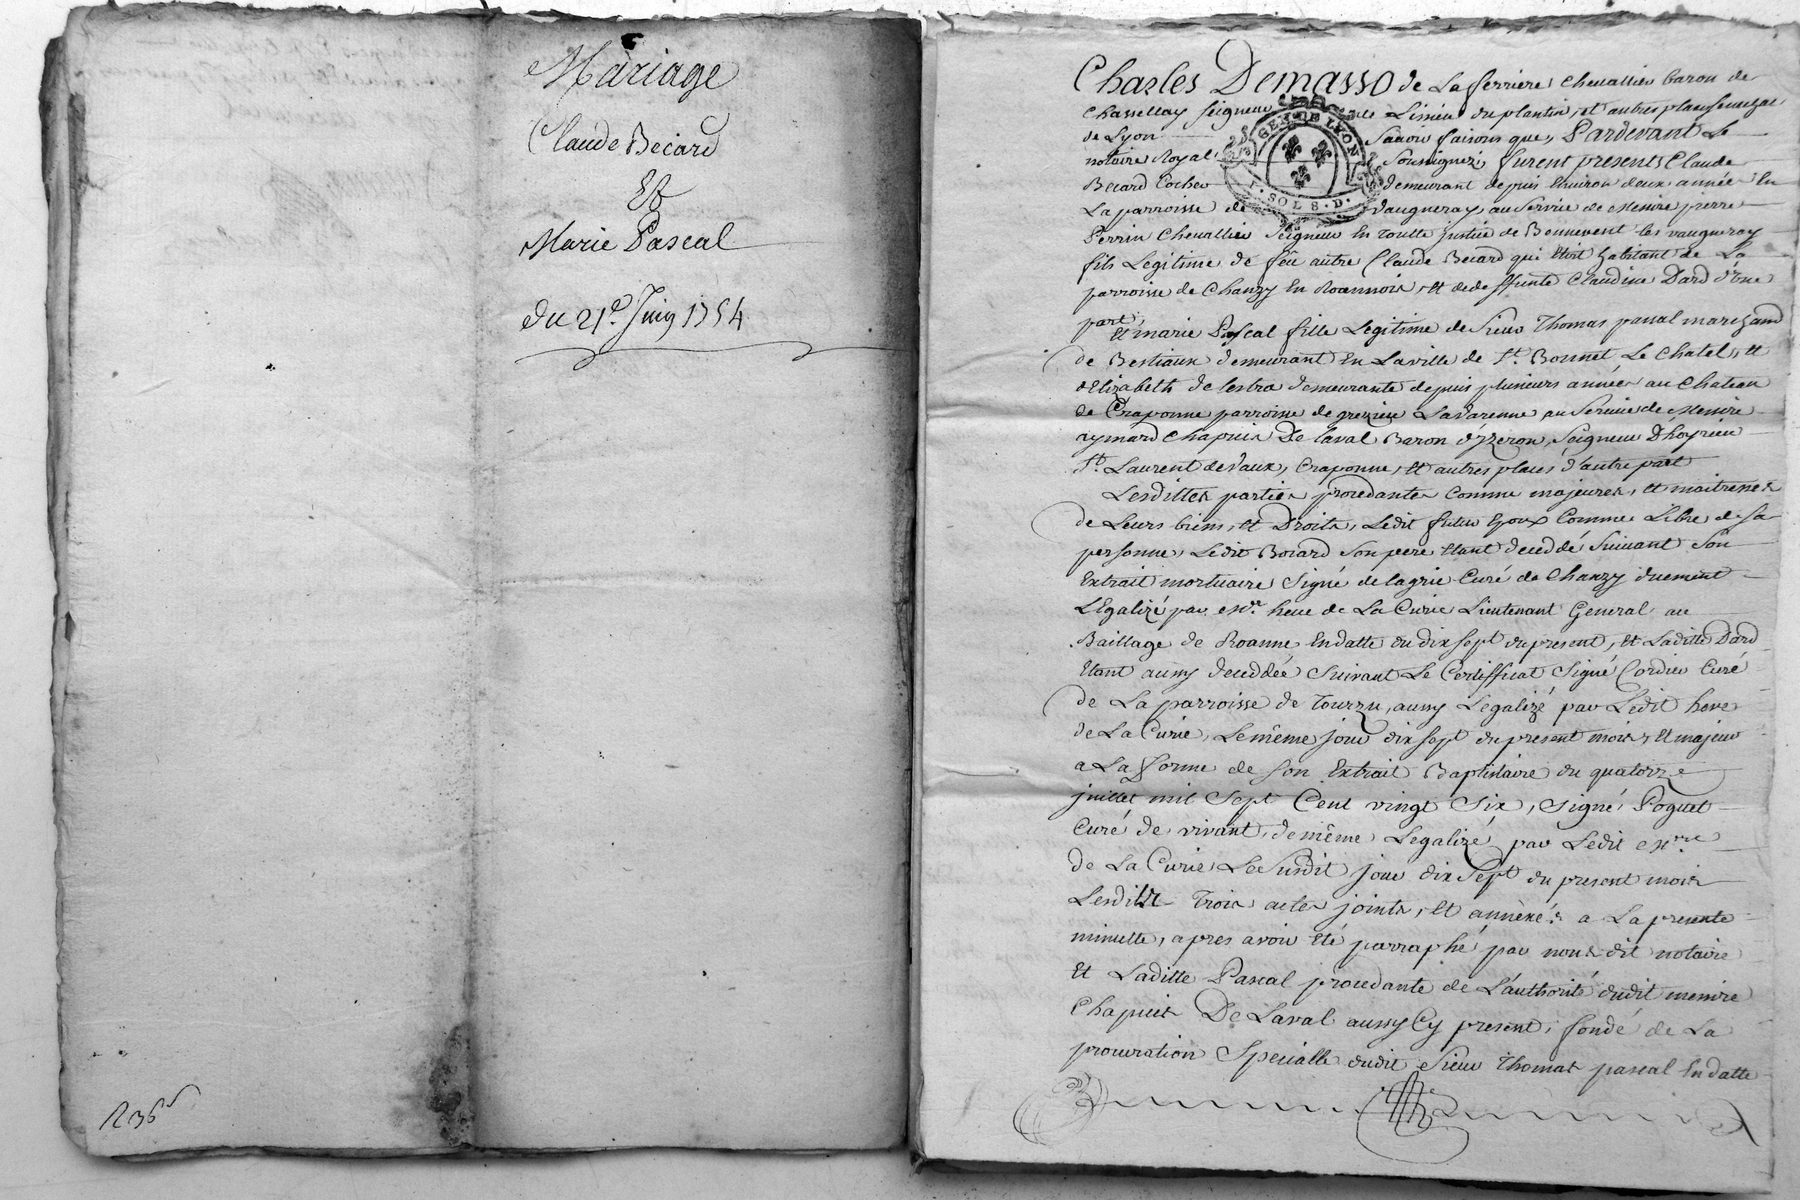 Mariage
Claude Becard
Et
Marie Pascal
du 21e. Juin 1754
Charles Demasso de La fferriere Chevallier baron de
Chassellay Seigneur de Limën du plantin, et autres places senechal
de Lyon Savoir faisons que, Pardevant Le
notaire Royal Soussigné, furent presents Claude
Becard Cocher demeurant depuis Environ deux année En
La parroisse de Vaugneray, au Service de Messire pierre
Perrin Chevallier Seigneur En toutte justice de Bennevent les vaugneray
fils Legitime de feû autre Claude Becard qui Etoit habitant de La
parroisse de Changy En Roannois, et de deffunte Claudine Dard d'Une
part,
Et marie Pascal fille Legitime de Sieur Thomas pascal marchand
de Bestiaux demeurant En La ville de St. Bonnet Le Chatel, et
d'Elizabeth de lestra demeurante depuis plusieurs années au Chateau
de Craponne parroisse de grezieu La Varenne au Service de Messire
aymard Chapuis De Laval Baron d'yzeron, Seigneur D'hoyrieu
St. Laurent de Vaux, Craponne, et autres places d'autre part
Lesdittes parties procedantes Comme majeures, et maitresses
de Leurs biens, et Droits, Ledit futur Epoux Comme Libre de sa
personne, Ledit Becard Son pere Etant deceddé Suivant Son
Extrait mortuaire Signé de lagrie Curé de Changy duement
LEgalizé par Mr. heue de La Curie Lieutenant General au
Baillage de Roanne En datte du dix sept du present, et Laditte Dard
Etant aussy deceddée Suivant Le Certifficat Signé Cordier Curé
de La parroisse de Tourzy, aussy Legalizé par Ledit heue
de La Curie, Le même jour dix sept du present mois, et majeur
a La fforme de Son Extrait Baptistaire du quatorze
juillet mil Sept Cent vingt Six, Signé Poguet
Curé de vivant, de même Legalizé par Ledit Mre
de La Curie Le Susdit jour dix Sept du present mois
Lesdits Trois actes joints, et annèxés a La presente
minutte, apres avoir Eté parraphé par nous dit notaire
Et Laditte Pascal procedante de L'authorité dudit messire
Chapuis De Laval aussy Cy present, fondé de La
procuration Specialle dudit Sieur Thomas pascal En datte
GEN. DE LYON
SOLS. D.